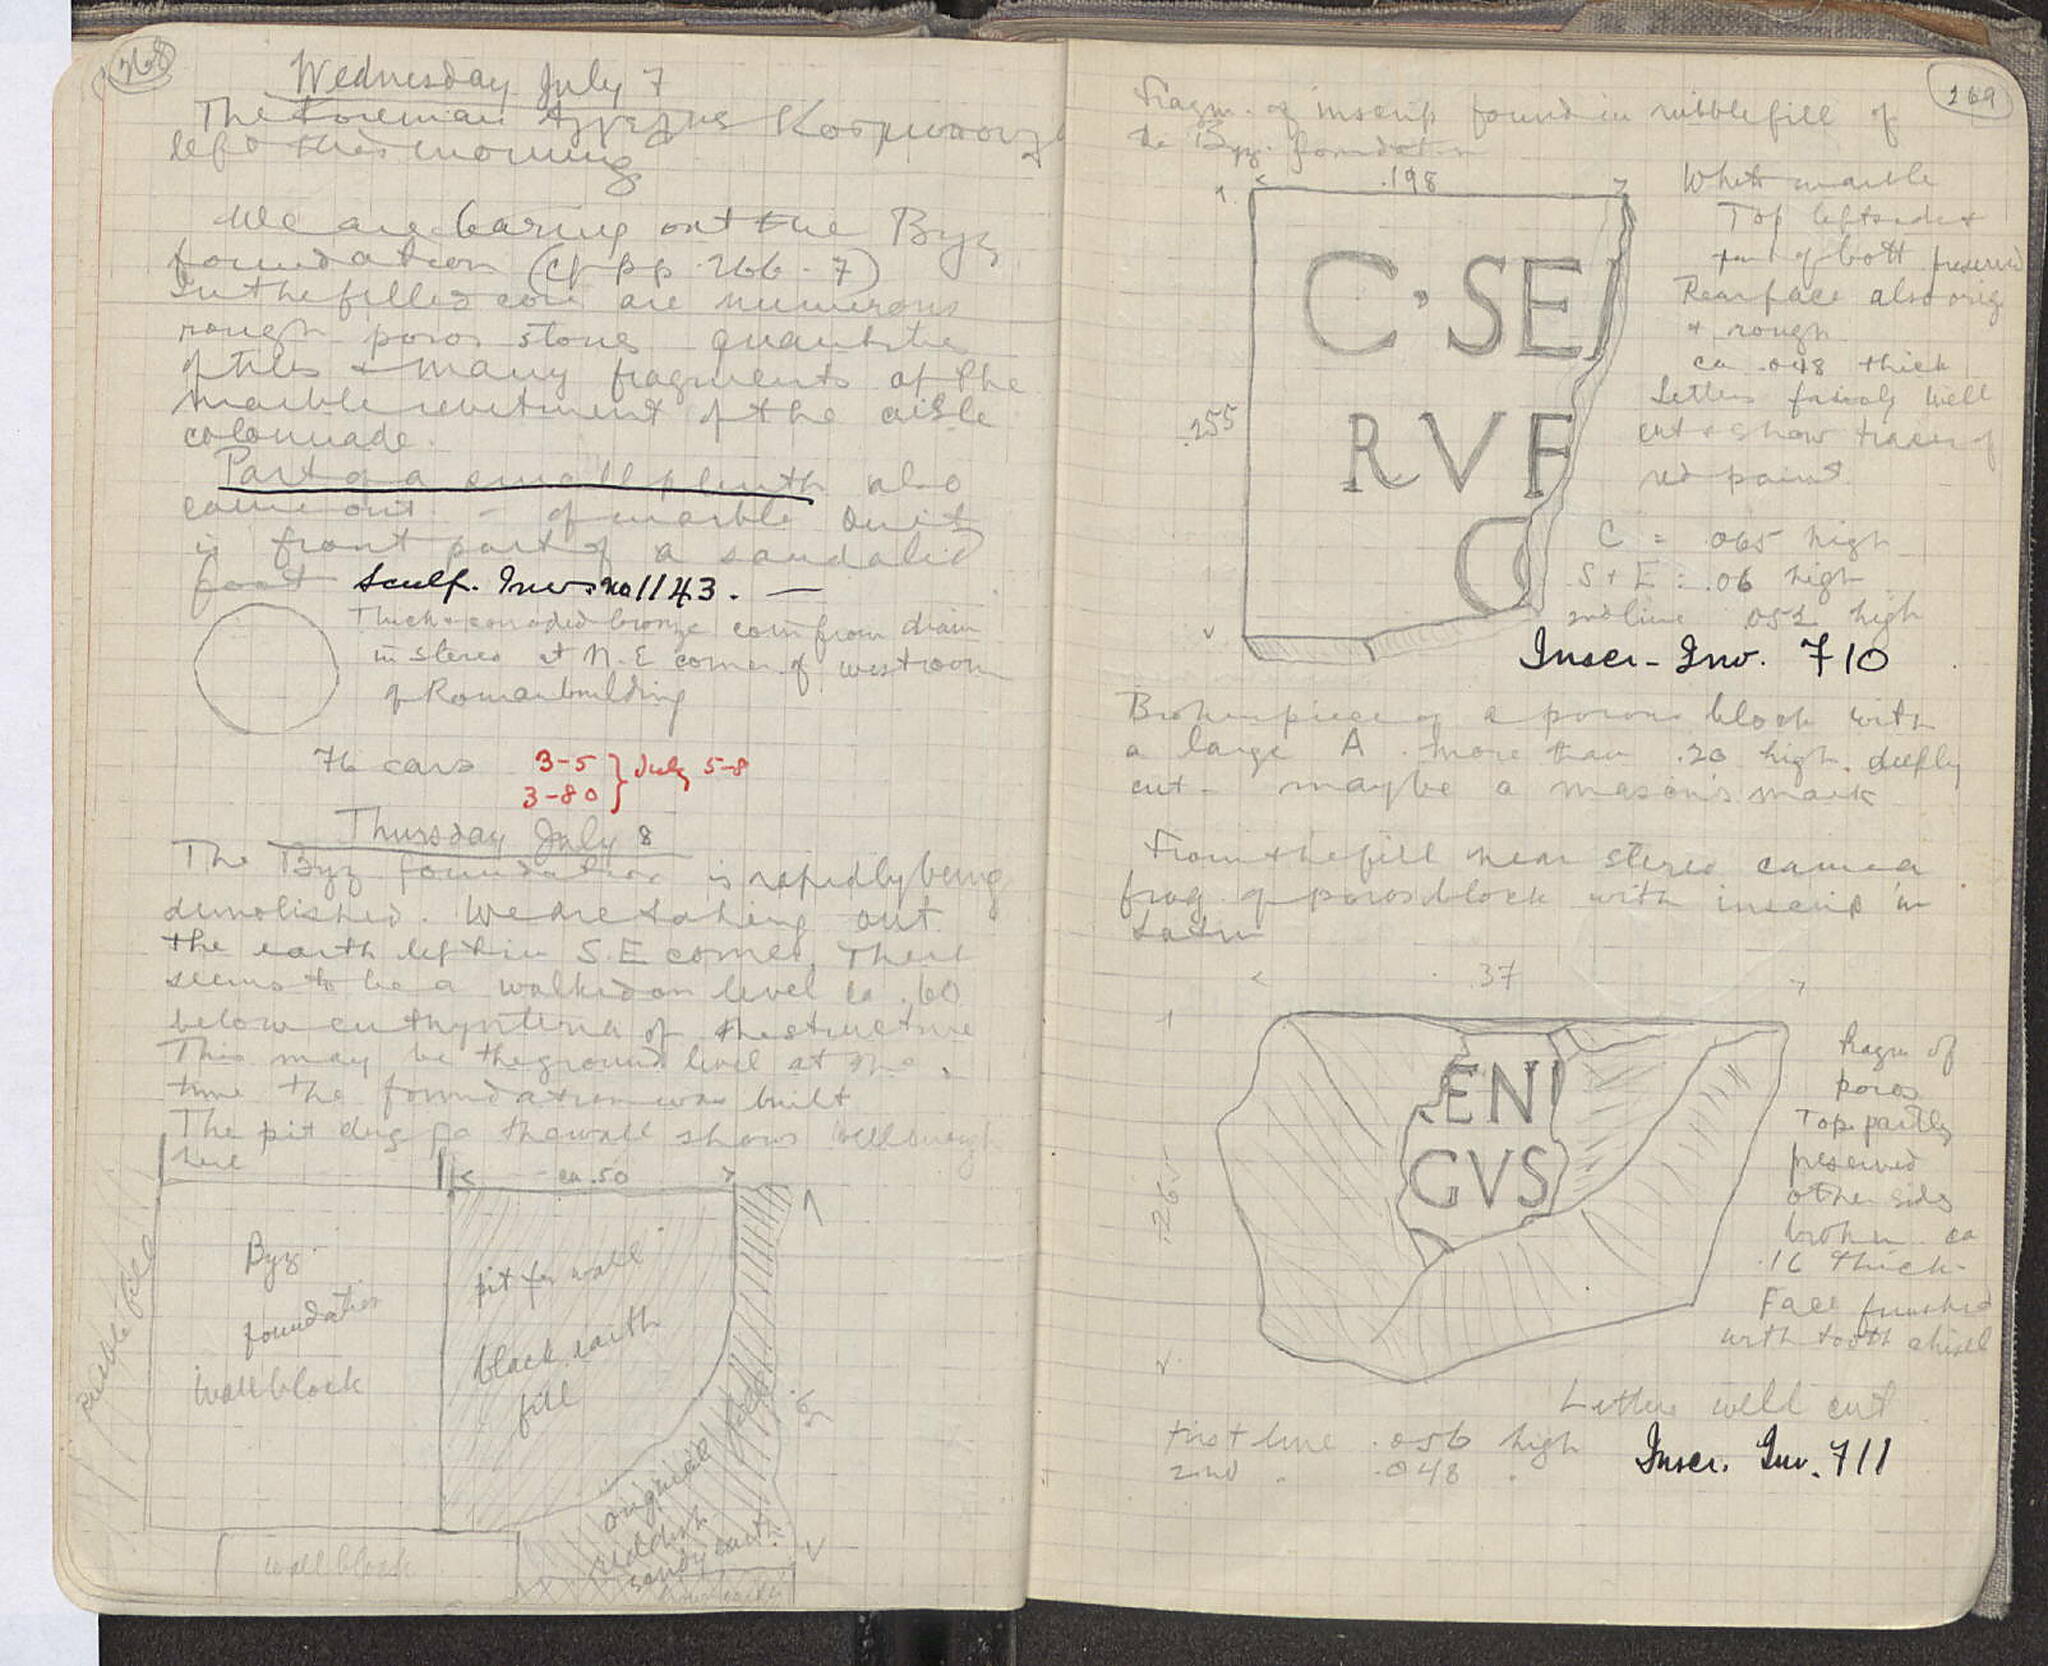 268
Wednesday July 7
The foreman
left this morning
We are baring out the Byz
foundation (cf pp. 266-7)
In the filled core are numerous
rough poros stones quantities
of tiles & many fragments of the
marble revetment of the aisle
colonnade.
Part of a small plinth also
came out - of marble On it
is front part of a sandaled
foot Sculp. Inv. no 1143. —
Thick corroded bronze coin from drain
in stereo at N.E corner of west room
of Roman building
76 cars
3-5 } July 5-8
3-80
Thursday July 8
The Byz foundation is rapidly being
demolished. We are taking out
the earth left in S.E corner. There
seems to be a walked on level ca .60
below euthynteria of the structure
This may be the ground level at the
time the foundation was built
The pit dug for the wall shows well enough
here
ca .50
rubble fill
Byz.
foundation
wall block
pit for wall
black earth
fill
original
reddish
sandy earth
wall block
269
Fragm. of inscrip found in rubble fill of
the Byz. foundation
.198
.255
C · SEI
RVF
C
White marble
Top left side &
part of bott preserved
Rear face also orig
& rough
ca .048 thick
Letters fairly well
cut & show traces of
red paint
C = .065 high
S + E = .06 high
2nd line .052 high
Inscr- Inv. 710
Broken piece of a poros block with
a large A more than .20 high. deeply
cut - maybe a mason's mark
From the fill near stereo came a
frag of poros block with inscrip in
Latin
.37
.265
ENI
GVS
Fragm of
poros
Top partly
preserved
other sides
broken ca
.16 thick-
Face finished
with tooth chisel
Letters well cut
first line .056 high
2nd " .048 "
Inscr. Inv. 711